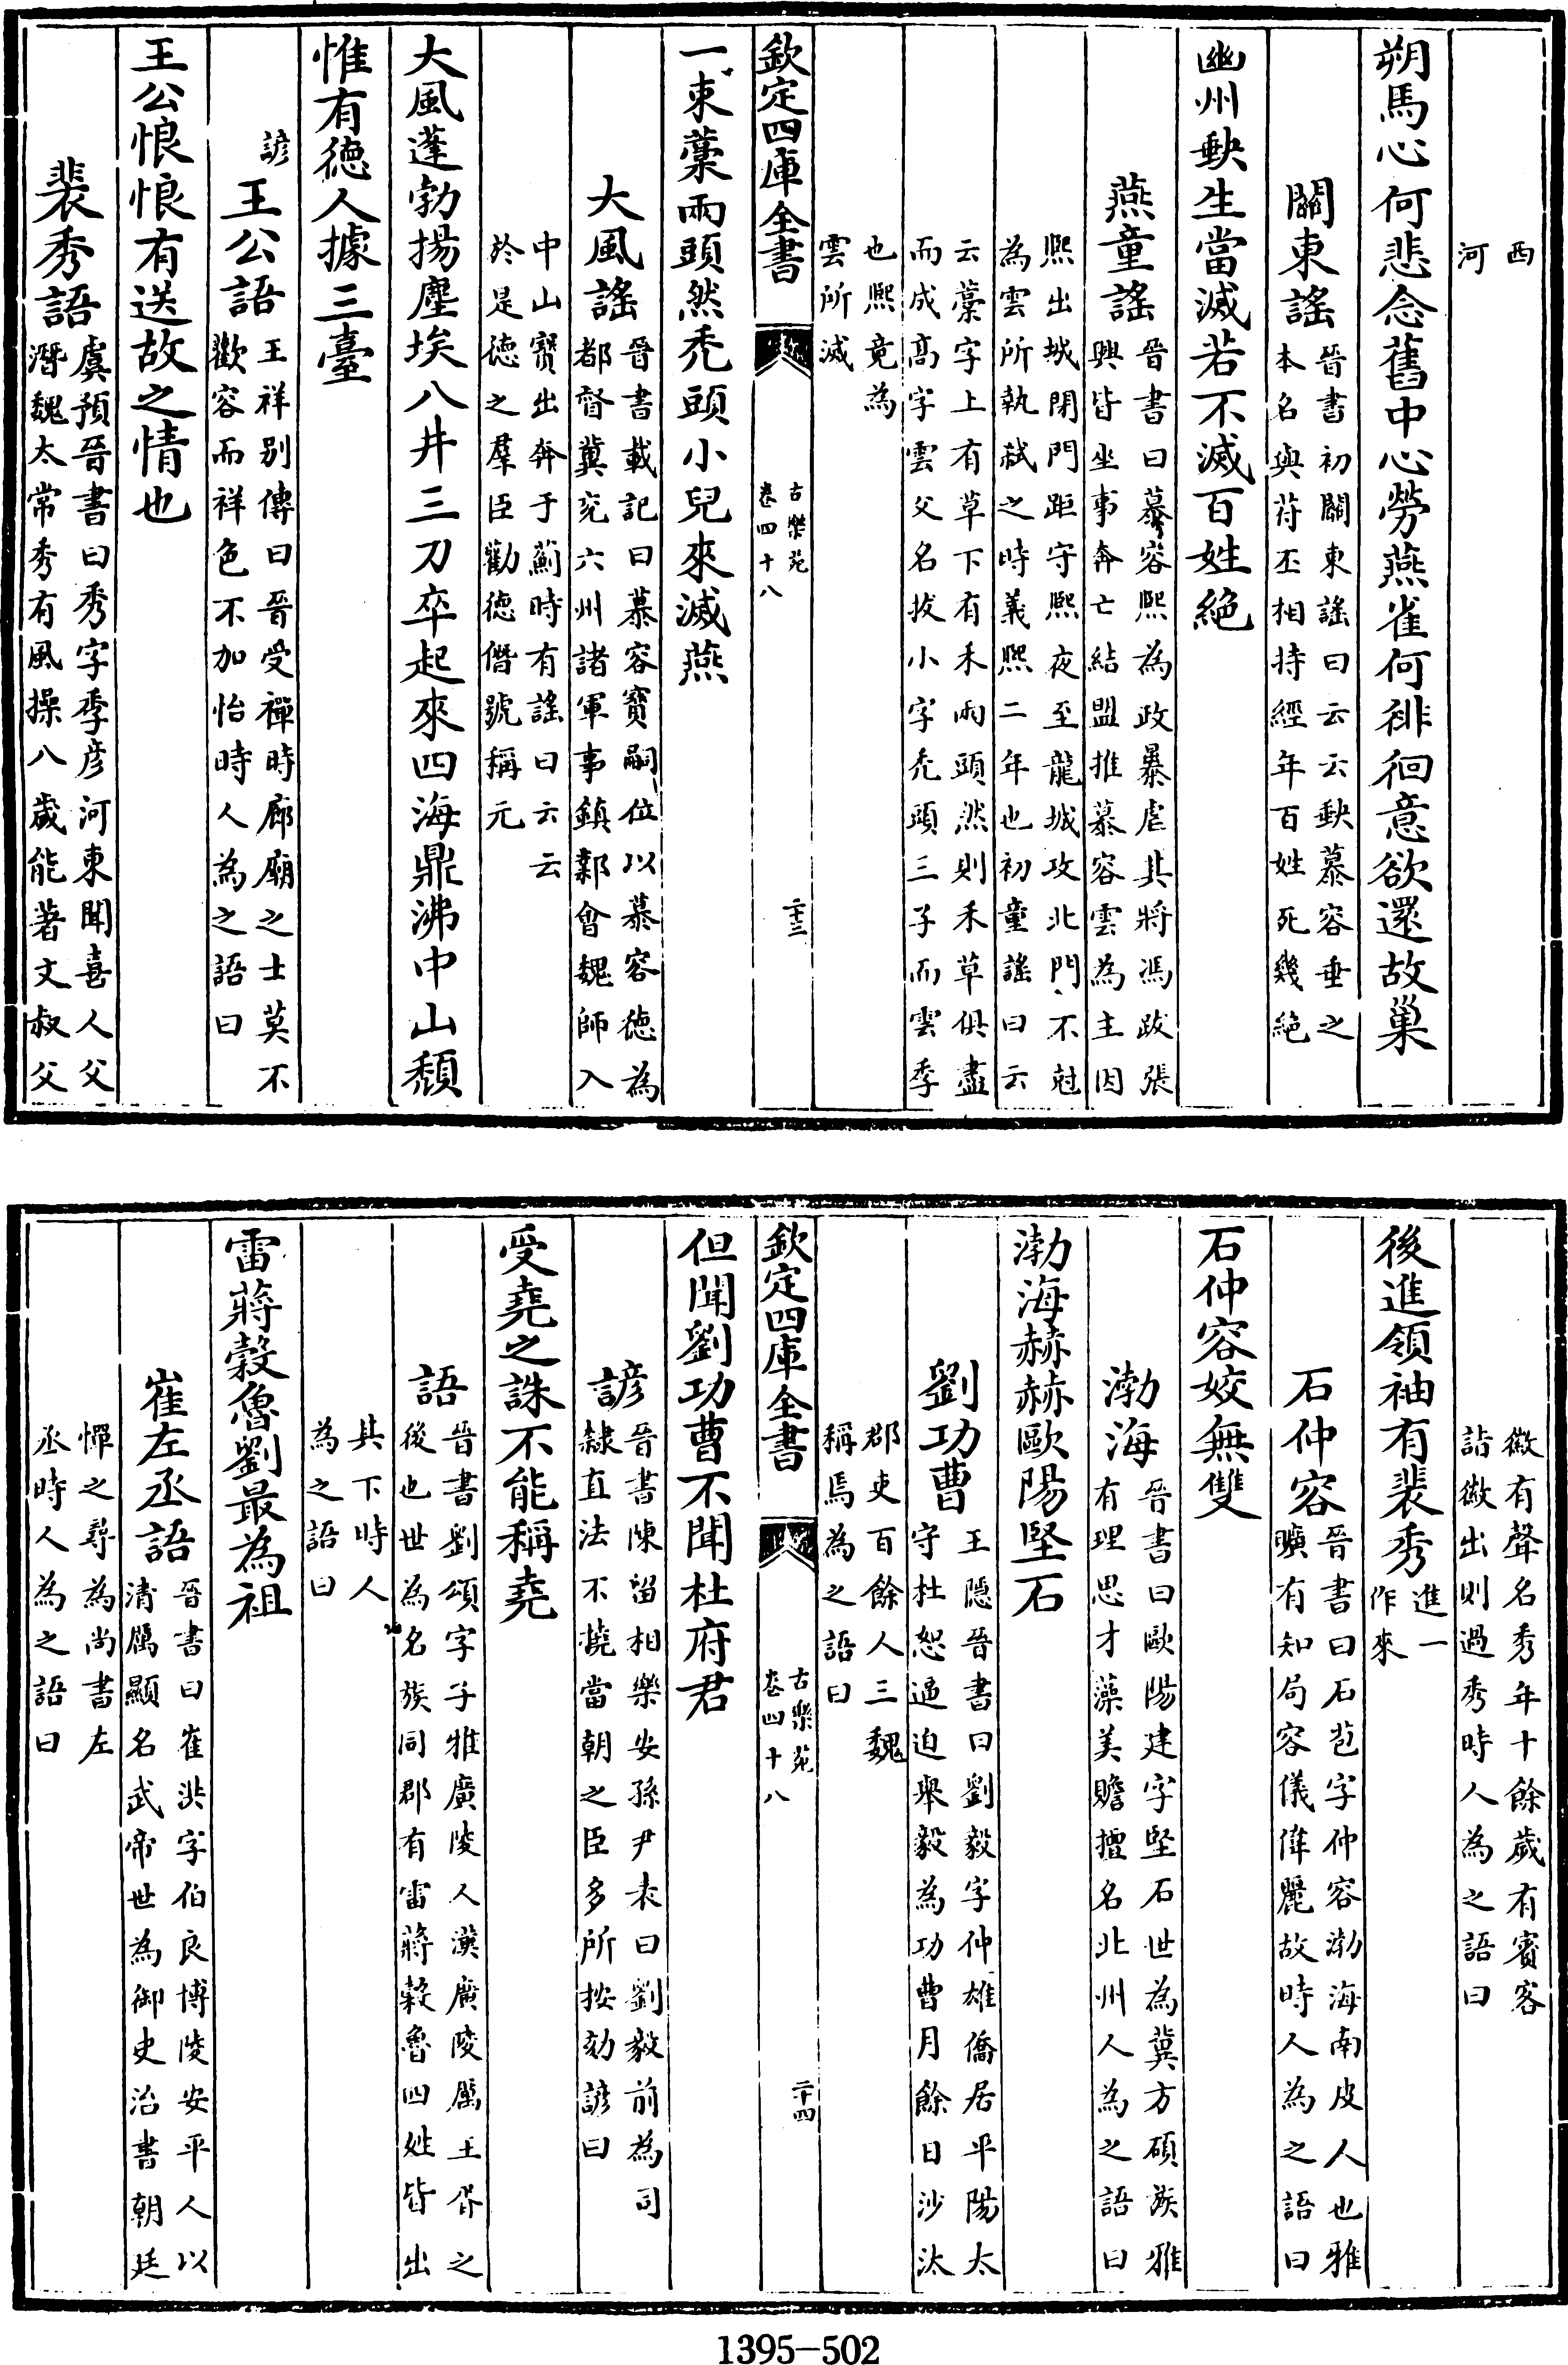 西
河
朔馬心何悲念舊中心勞燕雀何徘徊意欲還故巢
關東謠
晉書初關東謠曰云云𡙇慕容垂之
本名與苻丕相持經年百姓死幾絶
幽州𡙇生當滅若不滅百姓絶
燕童謠
晉書曰慕容熈為政暴虐其將馮跋張
興皆坐事奔亡結盟推慕容雲為主因
熈出城閉門距守熈夜至龍城攻北門不尅
為雲所執弑之時義熈二年也初童謠曰云
云藁字上有草下有禾兩頭然則禾草俱盡
而成高字雲父名拔小字秃頭三子而雲季
也熈竟為
雲所滅
欽定四庫全書
古樂苑
卷四十八
二十三
一束藁兩頭然秃頭小兒來滅燕
大風謠
晉書載記曰慕容寶嗣位以慕容德為
都督冀兖六州諸軍事鎮鄴會魏師入
中山寶出奔于薊時有謠曰云云
於是德之羣臣勸德僭號稱元
大風蓬勃揚塵埃八井三刀卒起來四海鼎沸中山頽
惟有德人據三臺
諺
王公語
王祥别傳曰晉受禪時廊廟之士莫不
歡容而祥色不加怡時人為之語曰
王公悢悢有送故之情也
裴秀語
虞預晉書曰秀字季彦河東聞喜人父
潛魏太常秀有風操八歲能著文叔父
徽有聲名秀年十餘歲有賓客
詣徽出則過秀時人為之語曰
後進領袖有裴秀
進一
作來
石仲容
晉書曰石苞字仲容渤海南皮人也雅
曠有知局容儀偉麗故時人為之語曰
石仲容姣無雙
渤海
晉書曰歐陽建字堅石世為冀方碩族雅
有理思才藻美贍擅名北州人為之語曰
渤海赫赫歐陽堅石
劉功曹
王隱晉書曰劉毅字仲雄僑居平陽太
守杜恕逼迫舉毅為功曹月餘日沙汰
郡吏百餘人三魏
稱焉為之語曰
欽定四庫全書
古樂苑
卷四十八
二十四
但聞劉功曹不聞杜府君
諺
晉書陳留相樂安孫尹表曰劉毅前為司
隸直法不撓當朝之臣多所按劾諺曰
受堯之誅不能稱堯
語
晉書劉頌字子雅廣陵人漢廣陵厲王胥之
後也世為名族同郡有雷蔣穀魯四姓皆出
其下時人
為之語曰
雷蔣穀魯劉最為祖
崔左丞語
晉書曰崔洪字伯良博陵安平人以
清厲顯名武帝世為御史治書朝廷
憚之尋為尚書左
丞時人為之語曰
1395-502